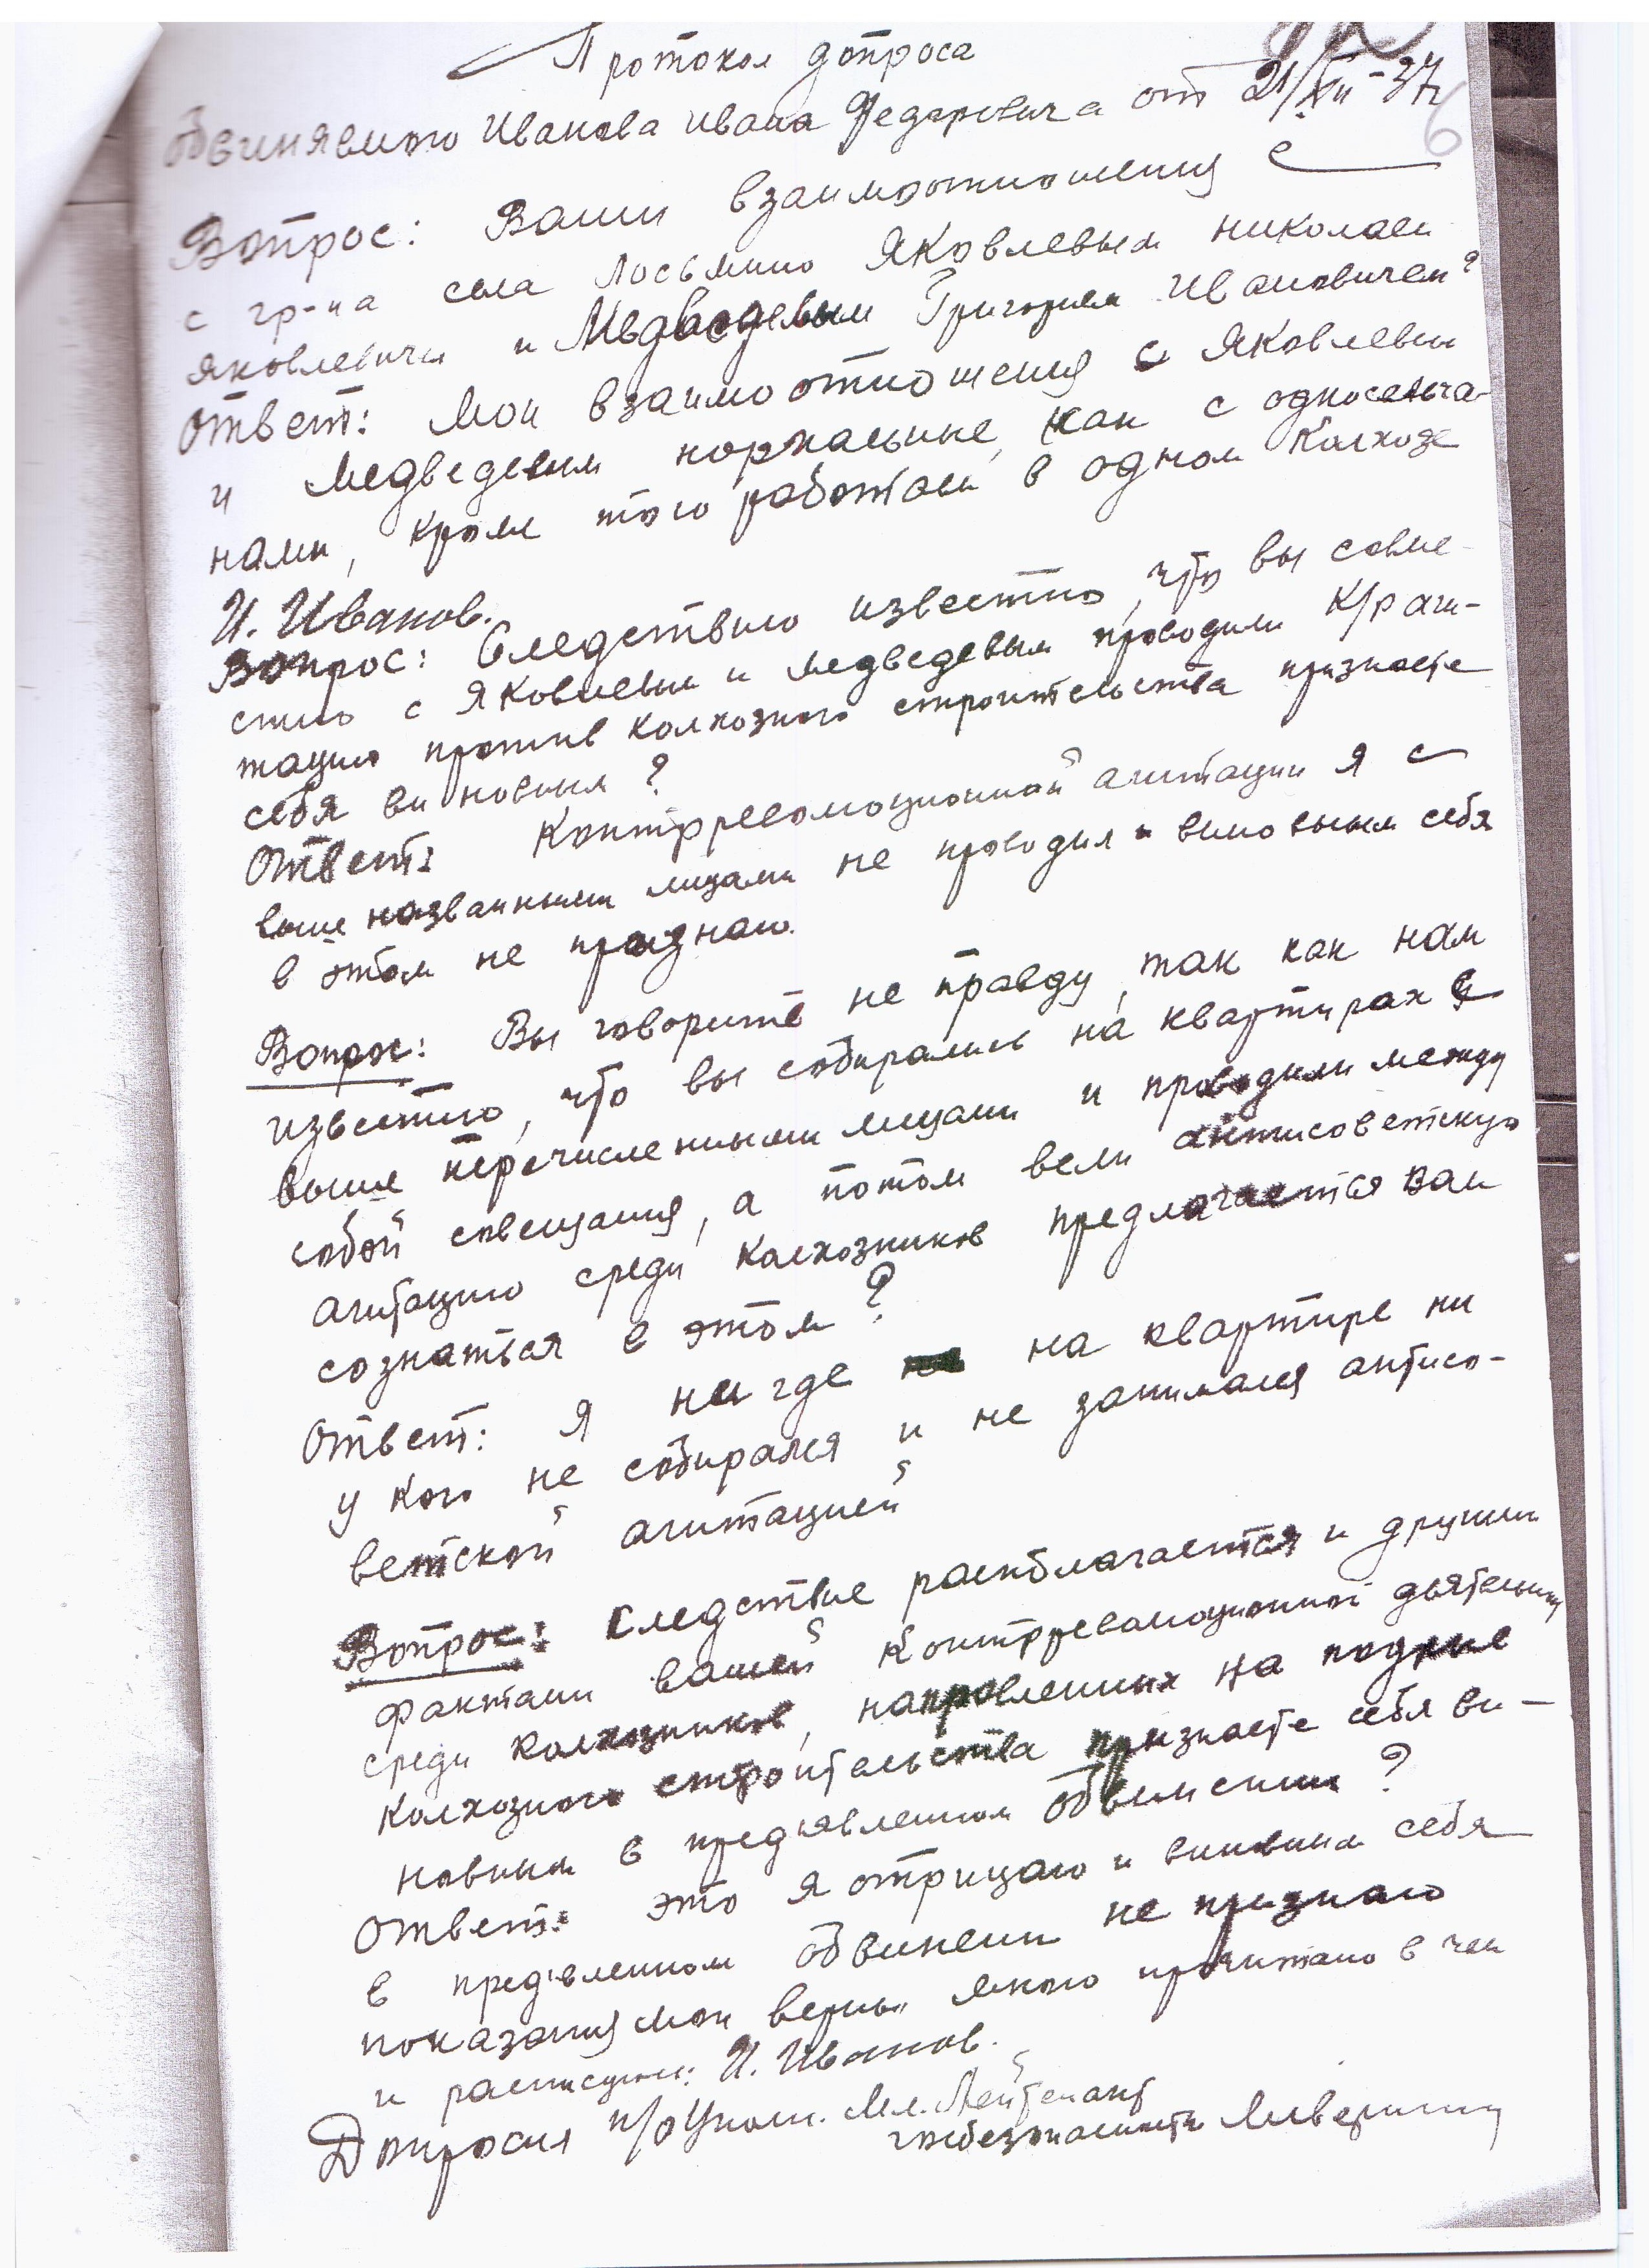 Протокол допроса
Обвиняемого Иванова Ивана Федоровича от 21/XII-37г
6
Вопрос: Ваши взаимоотношения с
с гр-на села Лосьмино Яковлевым Николаем
Яковлевичем и Медведевым Григорием Ивановичем?
Ответ: Мои взаимоотношения с Яковлевым
и Медведевым нормальные, как с односельча-
нами, кроме того работали в одном Колхозе
И. Иванов.
Вопрос: Следствию известно, что вы совме-
стно с Яковлевым и Медведевым проводили К/р аги-
тацию против колхозного строительства признаете
себя виновным?
Ответ: Контрреволюционной агитации я с
выше названными лицами не проводил и виновным себя
в этом не признаю.
Вопрос: Вы говорите не правду, так как нам
известно, что вы собирались на квартирах с
выше перечисленными лицами и проводили между
собой совещания, а потом вели антисоветскую
агитацию среди колхозников предлагается вам
сознаться в этом?
Ответ: Я ни где на квартире ни
у кого не собирался и не занимался антисо-
ветской агитацией
Вопрос: Следствие располагается и другими
фактами вашей Контрреволюционной деятельности
среди колхозников, направленных на подрыв
колхозного строительства признаете себя ви-
новным в предъявленном обвинении?
Ответ: это я отрицаю и виновным себя
в пред'явленном обвинении не признаю
показания мои верны мною прочитано в чем
и расписуюсь: И. Иванов.
Допросил п/оУполн. Мл. Лейтенант
госбезопасности